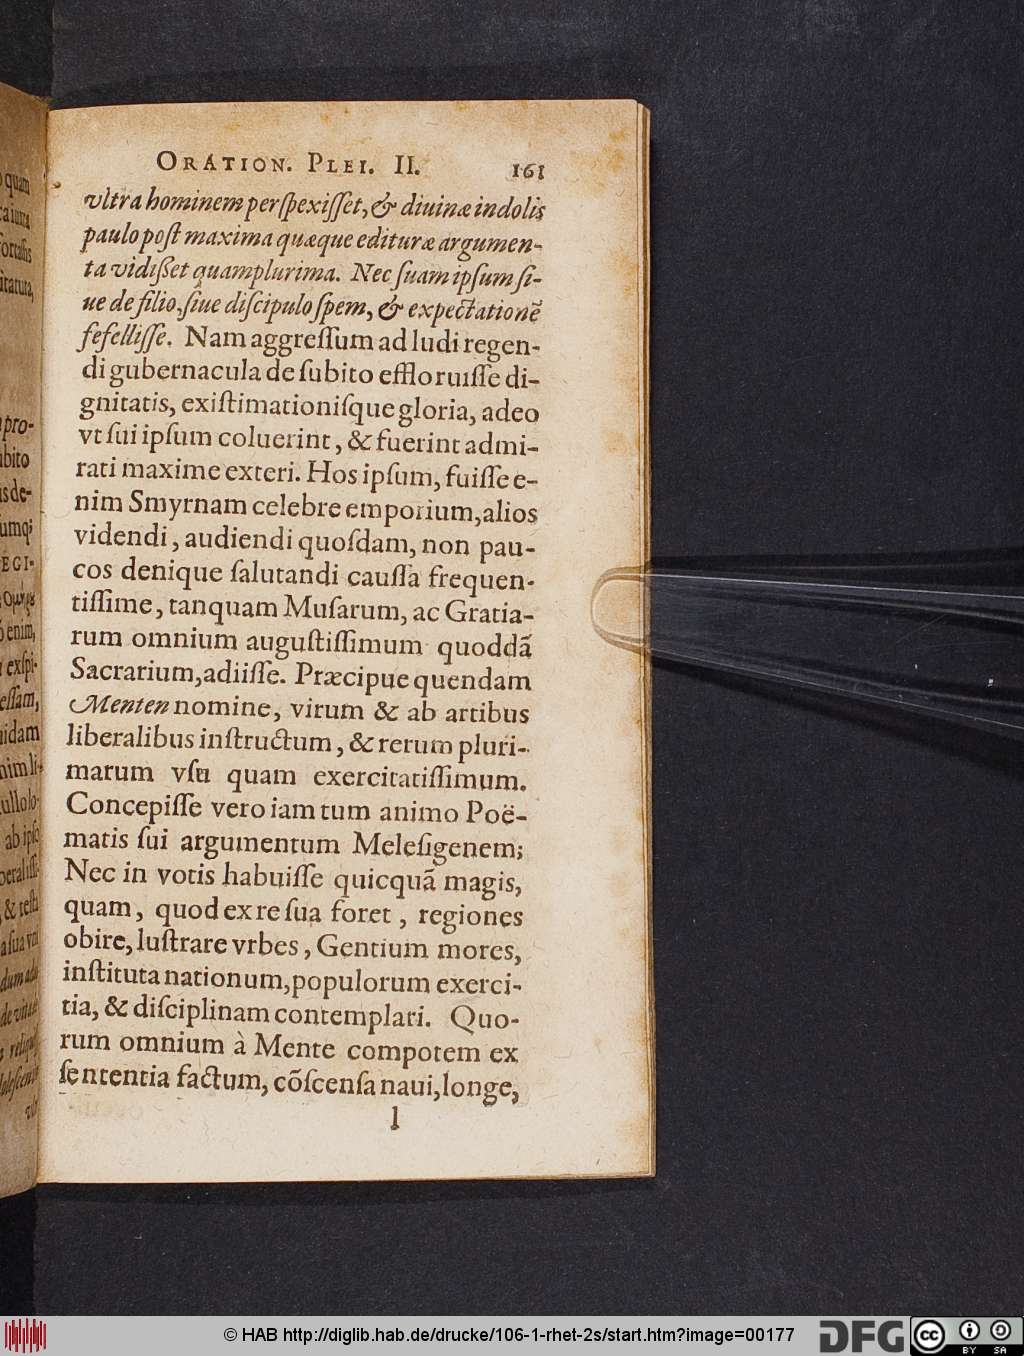 ORATION. PLEI. II. 161
vltra hominem perſpexiſſet, & diuinæ indolis
paulo poſt maxima quæque edituræ argumen-
ta vidiſſet quamplurima. Nec ſuam ipſum ſi-
ue de filio, ſiue diſcipulo ſpem, & expectationẽ
fefelliſſe. Nam aggreſſum ad ludi regen-
di gubernacula de ſubito effloruiſſe di-
gnitatis, exiſtimationiſque gloria, adeo
vt ſui ipſum coluerint, & fuerint admi-
rati maxime exteri. Hos ipſum, fuiſſe e-
nim Smyrnam celebre emporium, alios
videndi, audiendi quoſdam, non pau-
cos denique ſalutandi cauſſa frequen-
tiſſime, tanquam Muſarum, ac Gratia-
rum omnium auguſtiſſimum quoddã
Sacrarium, adiiſſe. Præcipue quendam
Menten nomine, virum & ab artibus
liberalibus inſtructum, & rerum pluri-
marum vſu quam exercitatiſſimum.
Concepiſſe vero iam tum animo Poë-
matis ſui argumentum Meleſigenem;
Nec in votis habuiſſe quicquã magis,
quam, quod ex re ſua foret, regiones
obire, luſtrare vrbes, Gentium mores,
inſtituta nationum, populorum exerci-
tia, & diſciplinam contemplari. Quo-
rum omnium à Mente compotem ex
ſententia factum, cõſcenſa naui, longe,
l
© HAB http://diglib.hab.de/drucke/106-1-rhet-2s/start.htm?image=00177
DFG
cc
BY SA